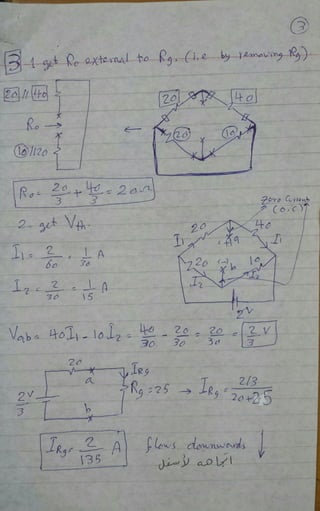 3
3 1. get Ro external to Rg. (i.e by removing Rg)
20//40
Ro →
10//20
←
20 40
20 10
Ro = 20/3 + 40/3 = 20 Ω
2- get Vth.
zero current
(o.c)
I1 = 2/60 = 1/30 A
I2 = 2/30 = 1/15 A
20 40
I1 a I1
20 b 10
I2 I2
2V
Vab = 40 I1 - 10 I2 = 40/30 - 20/30 = 20/30 = 2/3 V
20 a
IRg
2V/3
Rg = 25 → IRg = 2/3 / 20+25
b
IRg = 2/135 A flows downwards
اتجاهه لأسفل